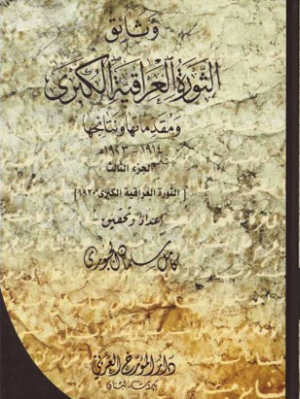 وثائق
الثورة العراقية الكبرى
ومقدماتها ونتائجها
١٩١٤ - ١٩٢٣
الجزء الثالث
[الثورة العراقية الكبرى ١٩٢٠]
إعداد وتحقيق
كامل سلمان الجبوري
دار المؤرخ العربي
بيروت - لبنان